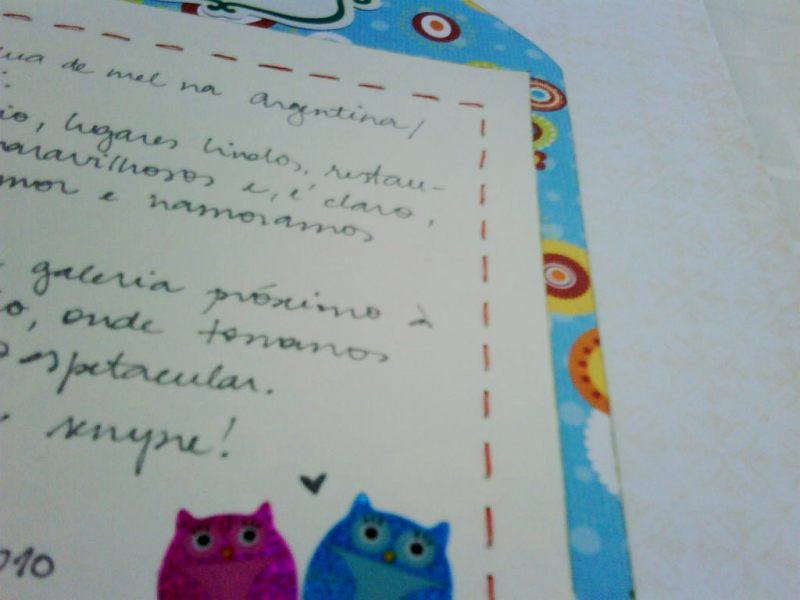 lua de mel na Argentina!
lugares lindos, restau-
maravilhosos e, é claro,
amor e namoramos
galeria próximo à
onde tomamos
espetacular.
sempre!
2010